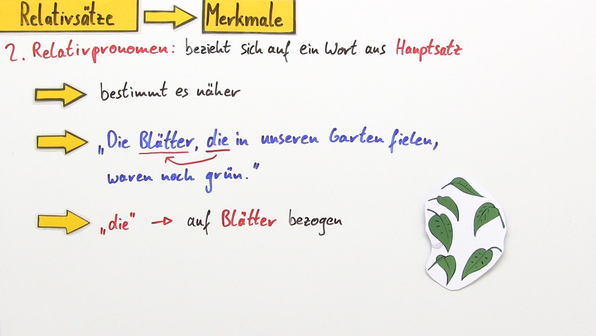 Relativsätze Merkmale
2. Relativpronomen: bezieht sich auf ein Wort aus Hauptsatz
bestimmt es näher
„Die Blätter, die in unseren Garten fielen,
waren noch grün."
„die" → auf Blätter bezogen